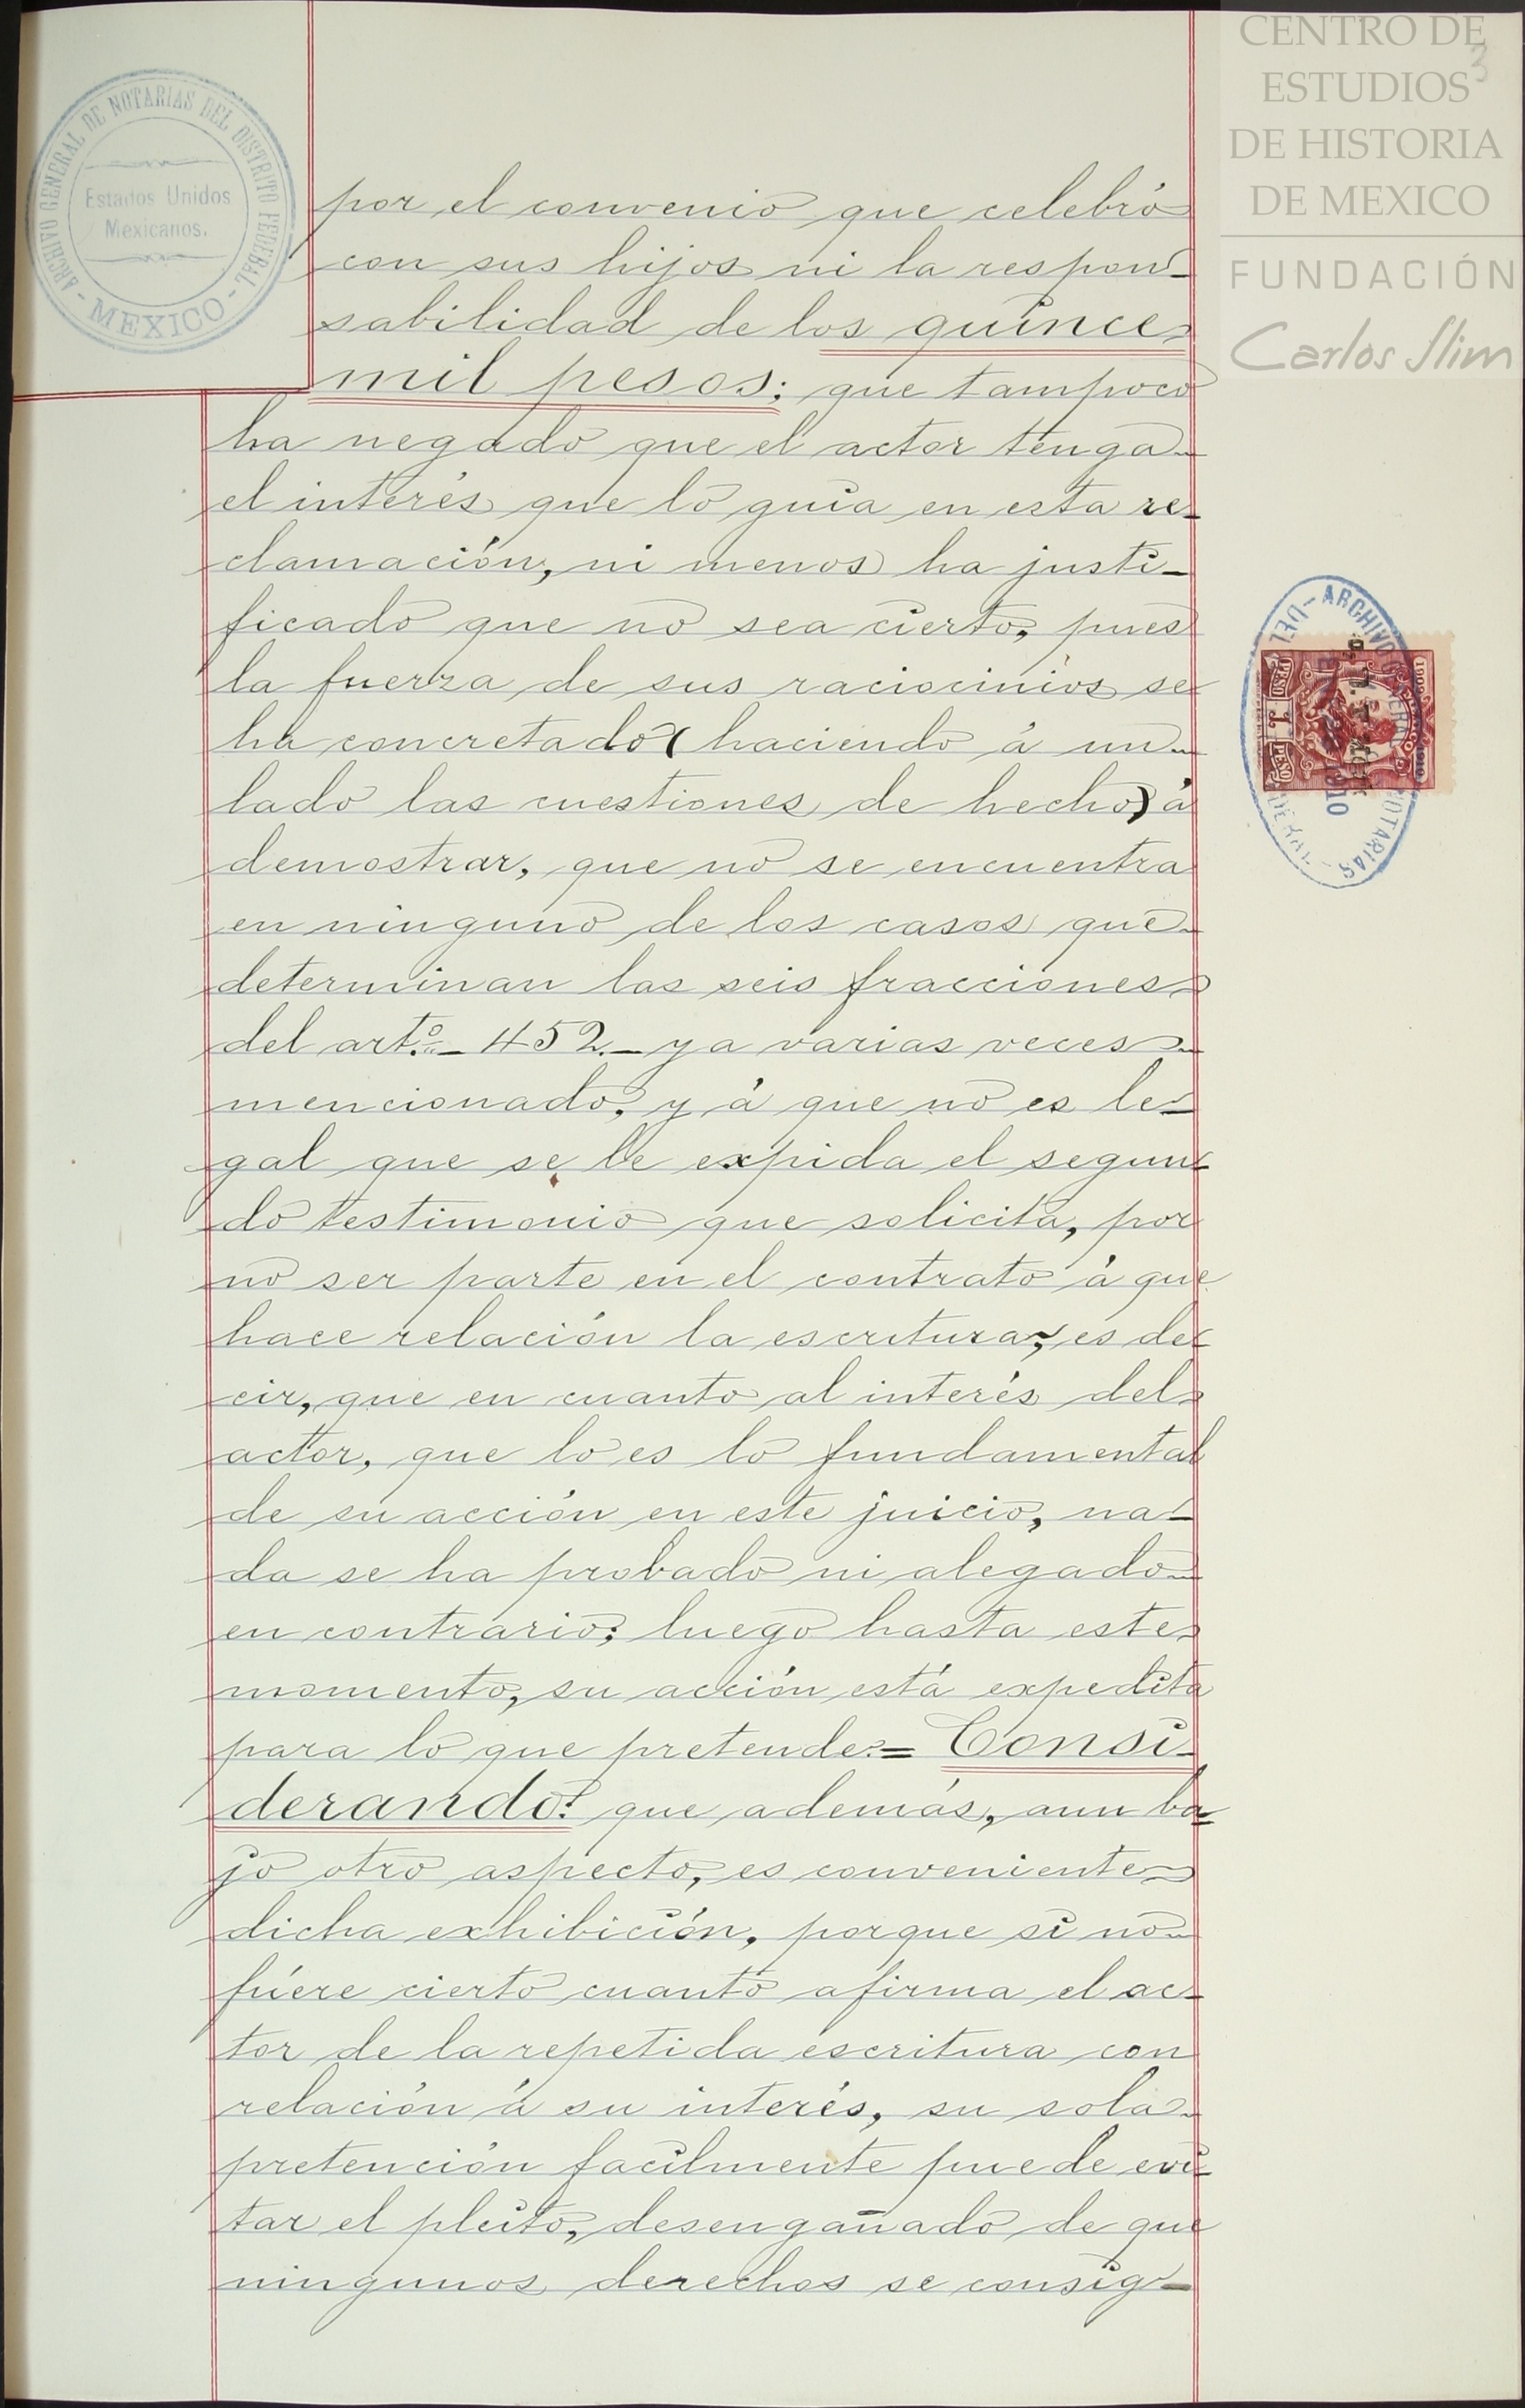 CENTRO DE
ESTUDIOS
DE HISTORIA
DE MEXICO
FUNDACIÓN
Carlos Slim
3
ARCHIVO GENERAL DE NOTARIAS DEL DISTRITO FEDERAL
Estados Unidos
Mexicanos.
- MEXICO -
por el convenio que celebró
con sus hijos ni la respon-
sabilidad de los quince
mil pesos; que tampoco
ha negado que el actor tenga
el interés que lo guia en esta re-
clamación, ni menos ha justi-
ficado que no sea cierto, pues
la fuerza de sus raciocinios se
ha concretado (haciendo á un
lado las cuestiones de hecho) á
demostrar, que no se encuentra
en ninguno de los casos que
determinan las seis fracciones
del art.º 452 ya varias veces
mencionado, y á que no es le-
gal que se le expida el segun-
do testimonio que solicita, por
no ser parte en el contrato á que
hace relación la escritura, es de-
cir, que en cuanto al interés del
actor, que lo es lo fundamental
de su acción en este juicio, na-
da se ha probado ni alegado
en contrario; luego hasta este
momento, su acción está expedita
para lo que pretende.= Consi-
derando: que además, aun ba-
jo otro aspecto, es conveniente
dicha exhibición, porque si no
fuere cierto cuanto afirma el ac-
tor de la repetida escritura con
relación á su interés, su sola
pretención facilmente puede evi-
tar el pleito, desengañado de que
ningunos derechos se consig-
ARCHIVO GENERAL
NOTARIAS
DEL
1910
1909
PESO 1 PESO